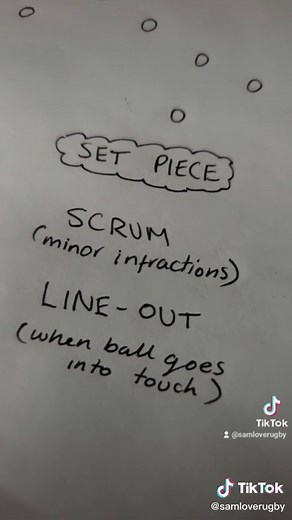 SET PIECE
SCRUM
(minor infractions)
LINE-OUT
(when ball goes
into touch)
TikTok
@samloverugby
TikTok
@samloverugby